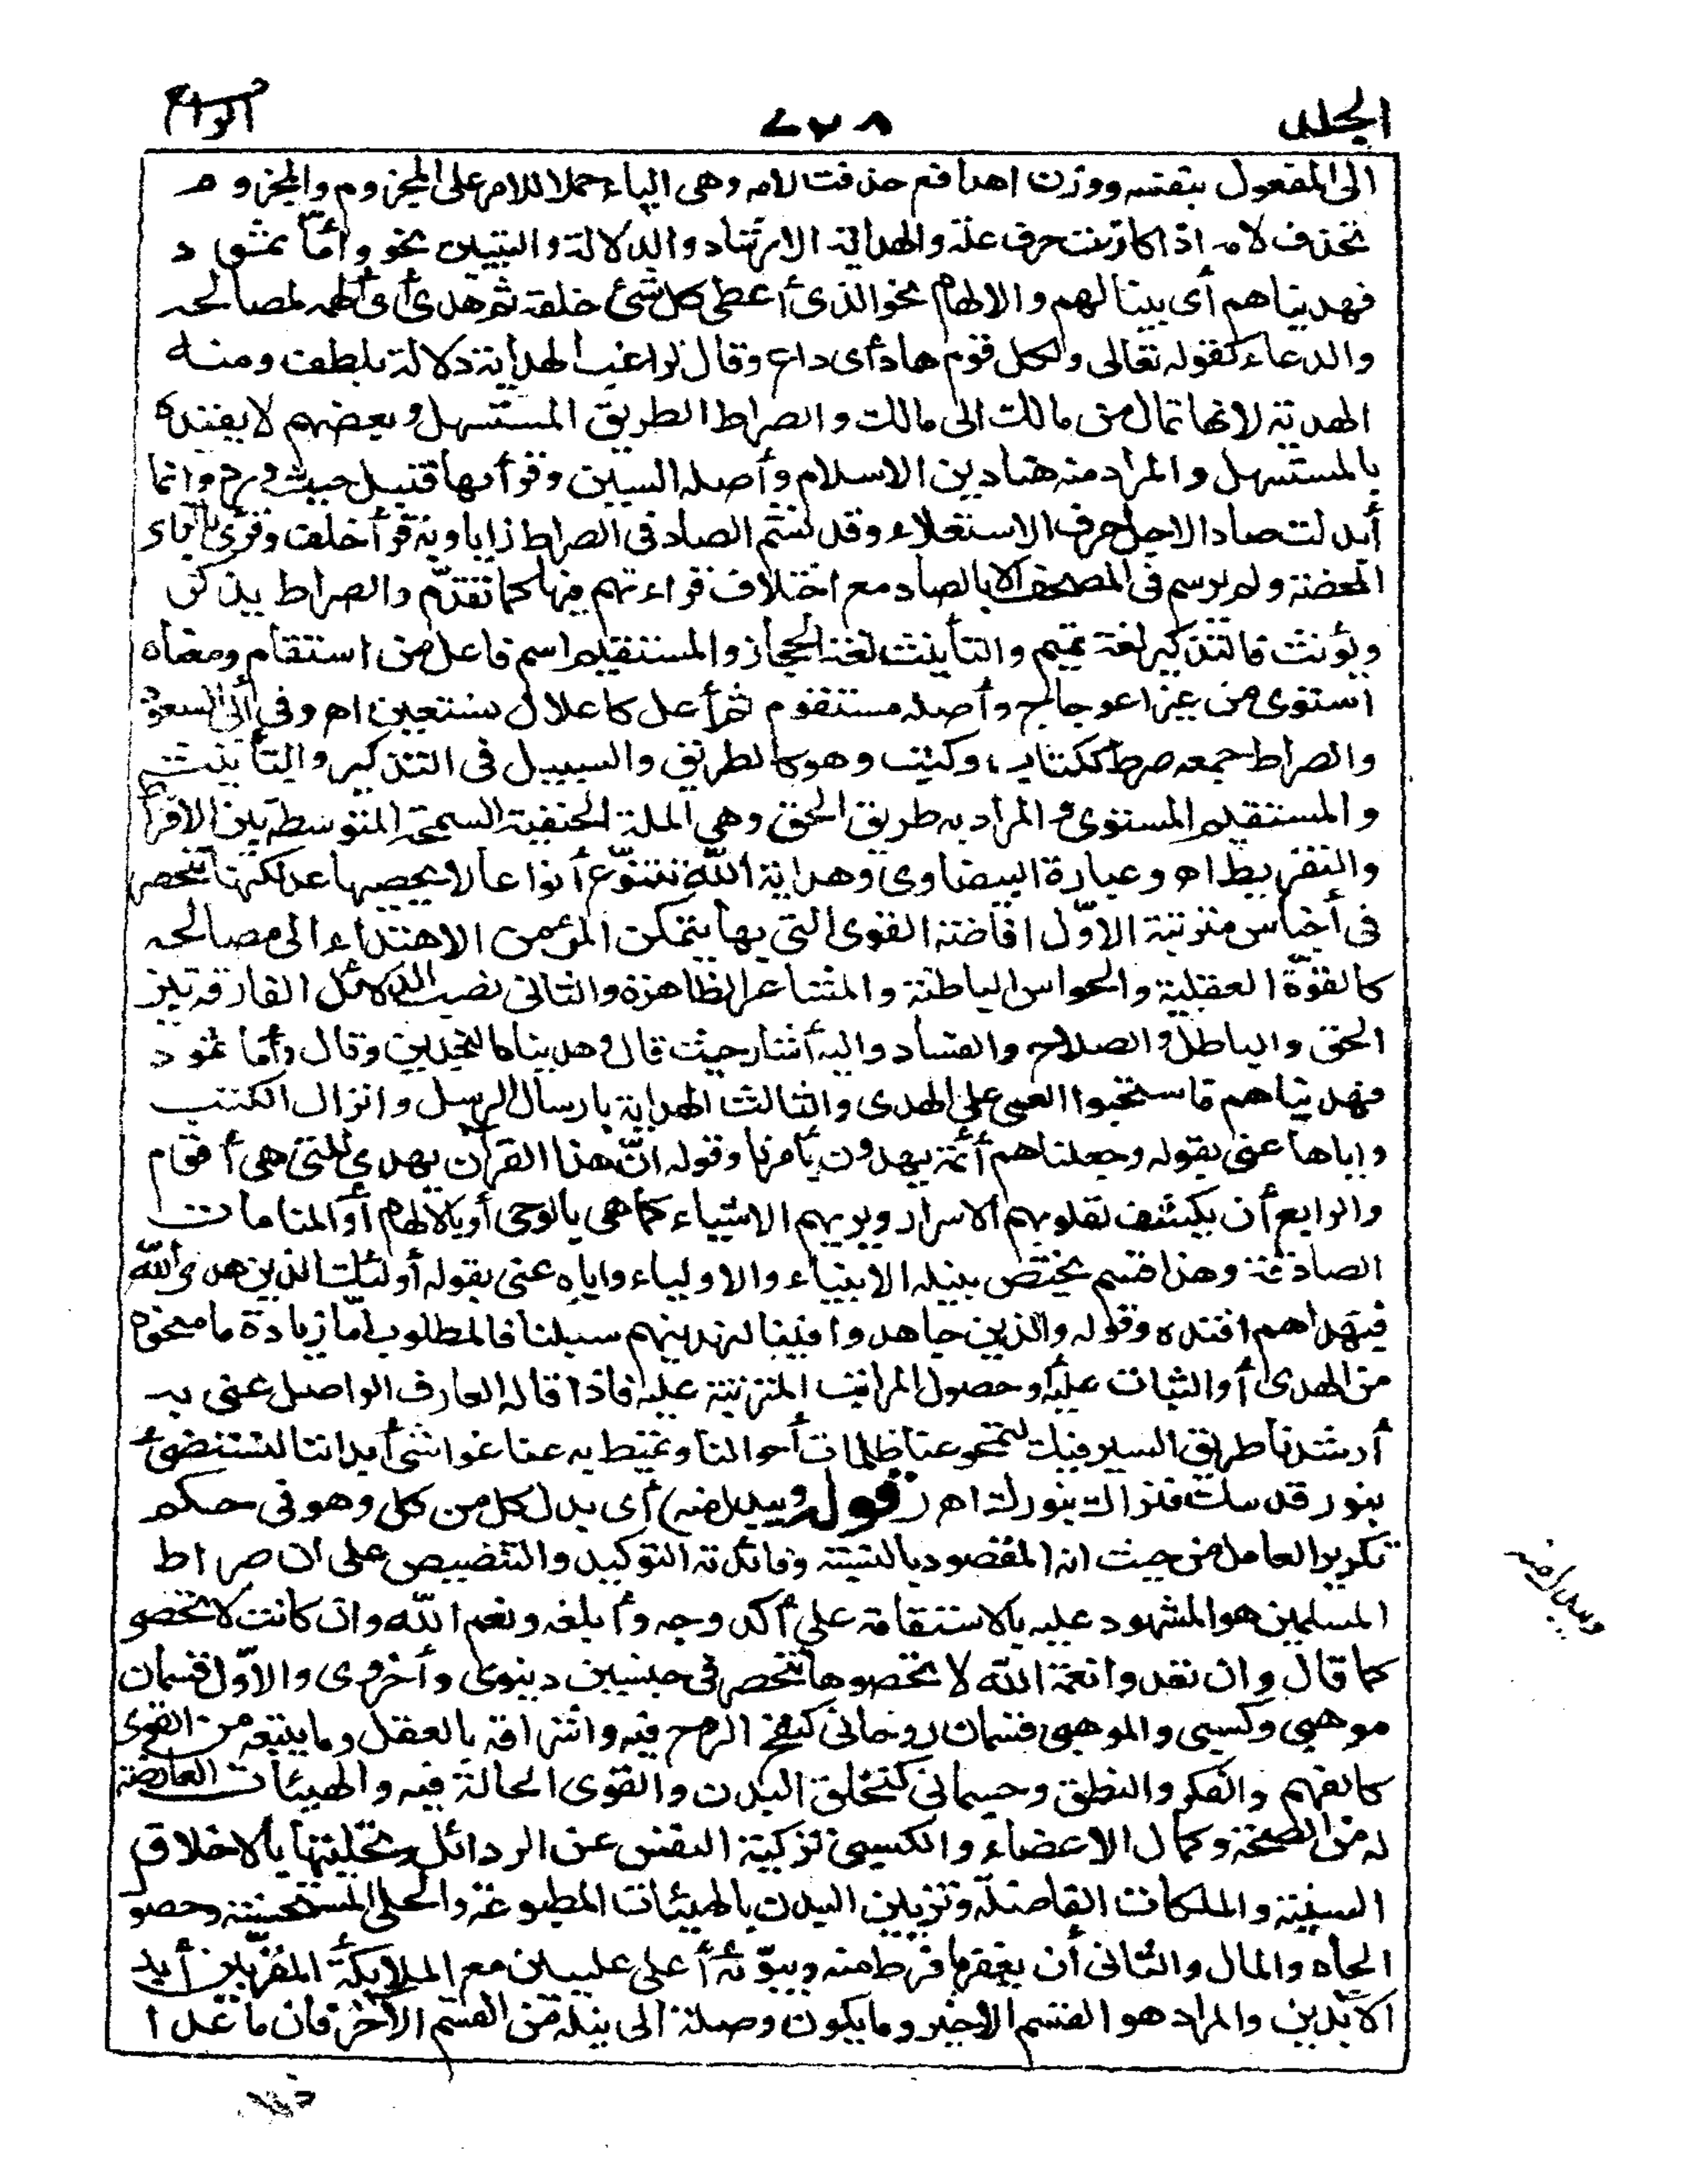 الجلد ٧٢٨ الرابع
الى المفعول بنفسه ووزن اهدنا فع حذفت لامه وهى الياء حملا للامر على المجزوم والمجزوم
تحذف لامه اذا كانت حرف علة والهداية الارشاد والدلالة والتبيين نحو وأمّا ثمود
فهديناهم أى بينا لهم والالهام نحو الذى أعطى كل شئ خلقه ثم هدى أى ألهمه لمصالحه
والدعاء كقوله تعالى ولكل قوم هاد أى داع وقال الراغب الهداية دلالة بلطف ومنه
الهدية لانها تمال من مالك الى مالك والصراط الطريق المستسهل وبعضهم لا يقيده
بالمستسهل والمراد منه هنا دين الاسلام وأصله السين وقرأ بها قنبل حيث ورد وانما
أبدلت صادا لاجل حرف الاستعلاء وقد تشم الصاد فى الصراط زايا وبه قرأ خلف وقرئ بالزاء
المحضة ولم يرسم فى المصحف الا بالصاد مع اختلاف قراءتهم فيها كما تقدّم والصراط يذكر
ويؤنث فالتذكير لغة تميم والتأنيث لغة الحجاز والمستقيم اسم فاعل من استقام ومعناه
استوى من غير اعوجاج وأصله مستقوم ثم أعل كاعلال نستعين اه وفى أبى السعود
والصراط جمعه صرط ككتاب وكتب وهو كالطريق والسبيل فى التذكير والتأنيث
والمستقيم المستوى والمراد به طريق الحق وهى الملة الحنيفية السمحة المتوسطة بين الافراط
والتفريط اه وعبارة البيضاوى وهداية الله تتنوّع أنواعا لا يحصيها عد لكنها تنحصر
فى أجناس مترتبة الاوّل افاضة القوى التى بها يتمكن المرء من الاهتداء الى مصالحه
كالقوّة العقلية والحواس الباطنة والمشاعر الظاهرة والثانى نصب الدلائل الفارقة بين
الحق والباطل والصلاح والفساد واليه أشار حيث قال وهديناه النجدين وقال وأما ثمود
فهديناهم فاستحبوا العمى على الهدى والثالث الهداية بارسال الرسل وانزال الكتب
واياها عنى بقوله وجعلناهم أئمة يهدون بأمرنا وقوله انّ هذا القرآن يهدى للتى هى أقوام
والرابع أن يكشف لقلوبهم الاسرار ويريهم الاشياء كما هى بالوحى أو بالالهام أو المنامات
الصادقة وهذا قسم يختص بنيله الانبياء والاولياء واياه عنى بقوله أولئك الذين هدى الله
فبهداهم اقتده وقوله والذين جاهدوا فينا لنهدينهم سبلنا فالمطلوب امّا زيادة ما منحوه
من الهدى أو الثبات عليه أو حصول المراتب المترتبة عليه فاذا قاله العارف الواصل عنى به
أرشدنا طريق السير فيك لتمحو عنا ظلمات أحوالنا وتميط به عنا غواشى أبداننا لنستضئ
بنور قدسك فنراك بنورك اه (قوله ويبدل منه) أى بدل كل من كل وهو فى حكم
تكرير العامل من حيث انه المقصود بالنسبة وفائدته التوكيد والتنصيص على ان صراط
المسلمين هو المشهود عليه بالاستقامة على آكد وجه وأبلغه ونعم الله وان كانت لا تحصو
كما قال وان تعدوا نعمة الله لا تحصوها تنحصر فى جنسين دنيوى وأخروى والاوّل قسمان
موهبى وكسبى والموهبى قسمان روحانى كنفخ الروح فيه واشراقه بالعقل وما يتبعه من القوى
كالفهم والفكر والنطق وجسمانى كتخلق البدن والقوى الحالة فيه والهيئات العارضة
له من الصحة وكمال الاعضاء والكسبى تزكية النفس عن الرذائل وتحليتها بالاخلاق
السنية والملكات الفاضلة وتزيين البدن بالهيئات المطبوعة والحلى المستحسنة وحصو
الجاه والمال والثانى أن يغفر ما فرط منه ويبوّئه أعلى عليين مع الملائكة المقرّبين أبد
الآبدين والمراد هو القسم الاخير وما يكون وصلة الى نيله من القسم الآخر فان ما عدا
ويبدل منه